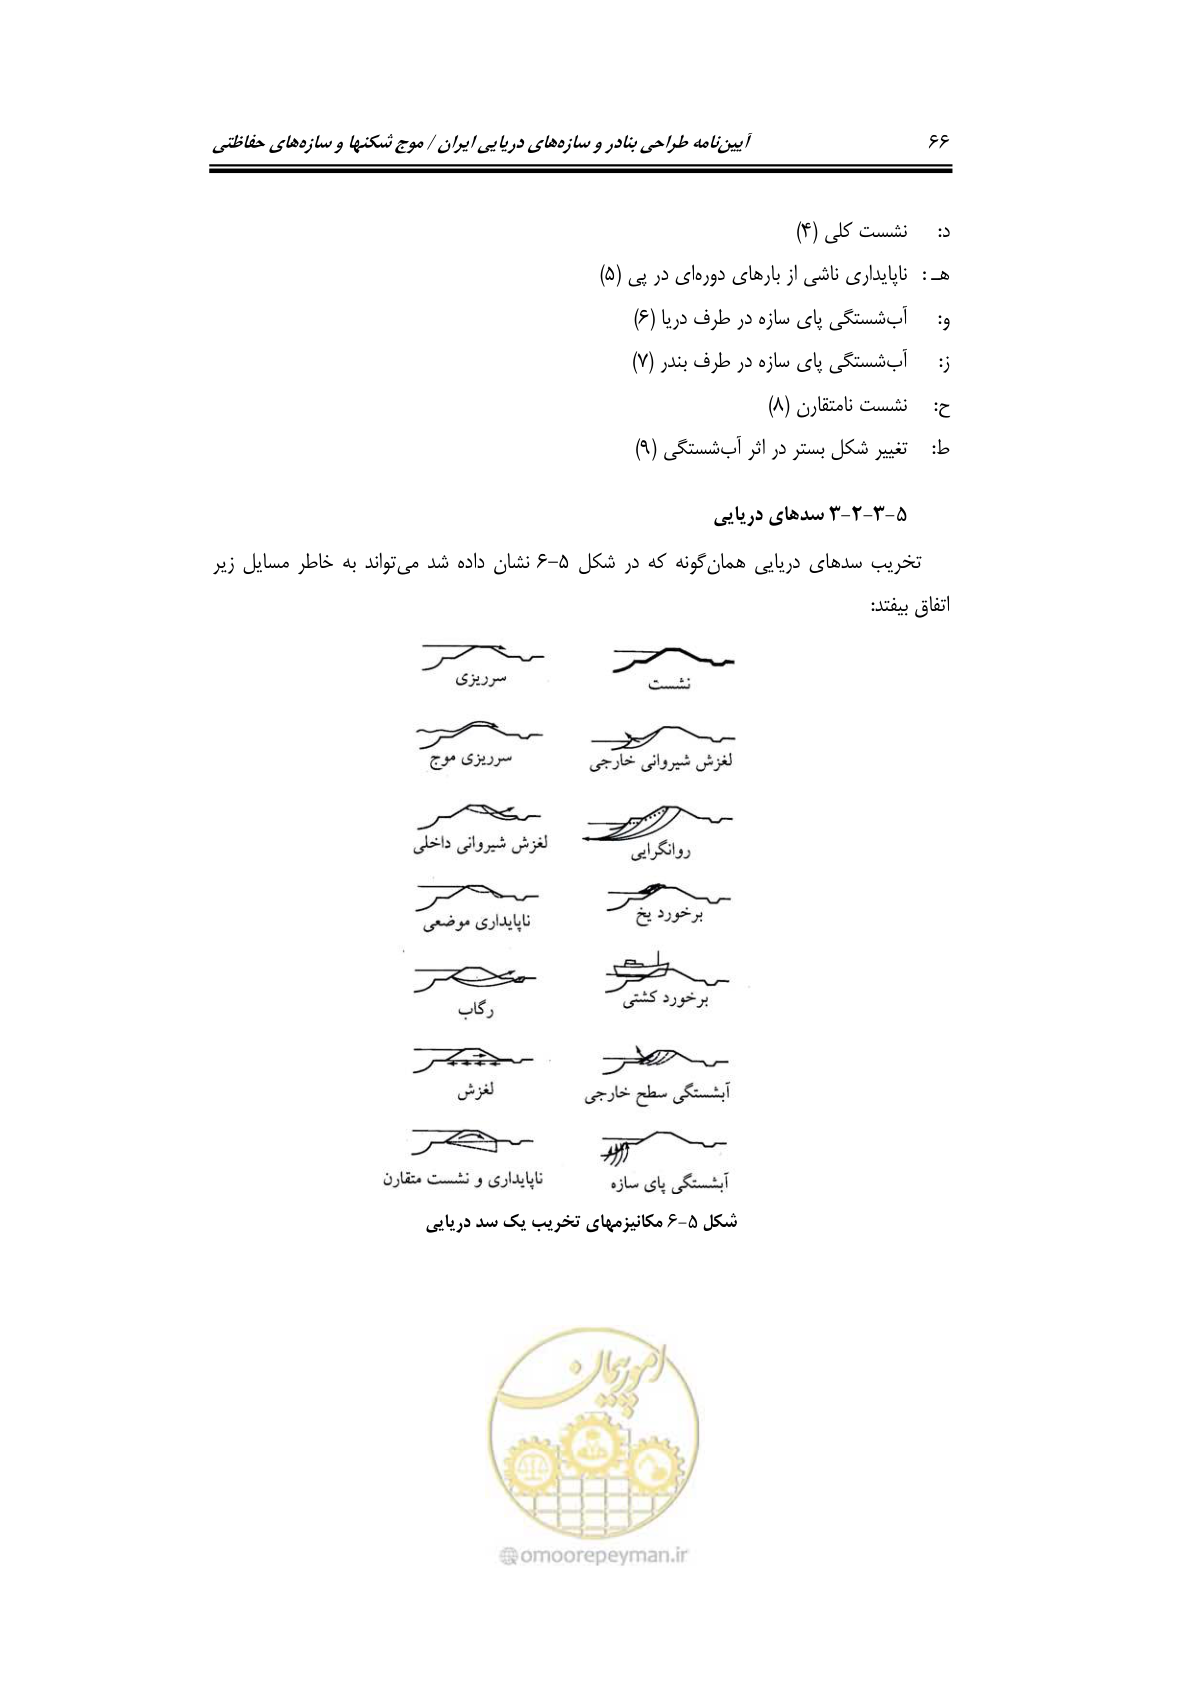 ۶۶ آیین‌نامه طراحی بنادر و سازه‌های دریایی ایران / موج شکنها و سازه‌های حفاظتی
د: نشست کلی (۴)
هـ : ناپایداری ناشی از بارهای دوره‌ای در پی (۵)
و: آب‌شستگی پای سازه در طرف دریا (۶)
ز: آب‌شستگی پای سازه در طرف بندر (۷)
ح: نشست نامتقارن (۸)
ط: تغییر شکل بستر در اثر آب‌شستگی (۹)
۵-۳-۲-۳ سدهای دریایی
تخریب سدهای دریایی همان‌گونه که در شکل ۵-۶ نشان داده شد می‌تواند به خاطر مسایل زیر
اتفاق بیفتد:
نشست سرریزی
لغزش شیروانی خارجی سرریزی موج
روانگرایی لغزش شیروانی داخلی
برخورد یخ ناپایداری موضعی
برخورد کشتی رگاب
آبشستگی سطح خارجی لغزش
آبشستگی پای سازه ناپایداری و نشست متقارن
شکل ۵-۶ مکانیزمهای تخریب یک سد دریایی
امور پیمان
@omoorepeyman.ir